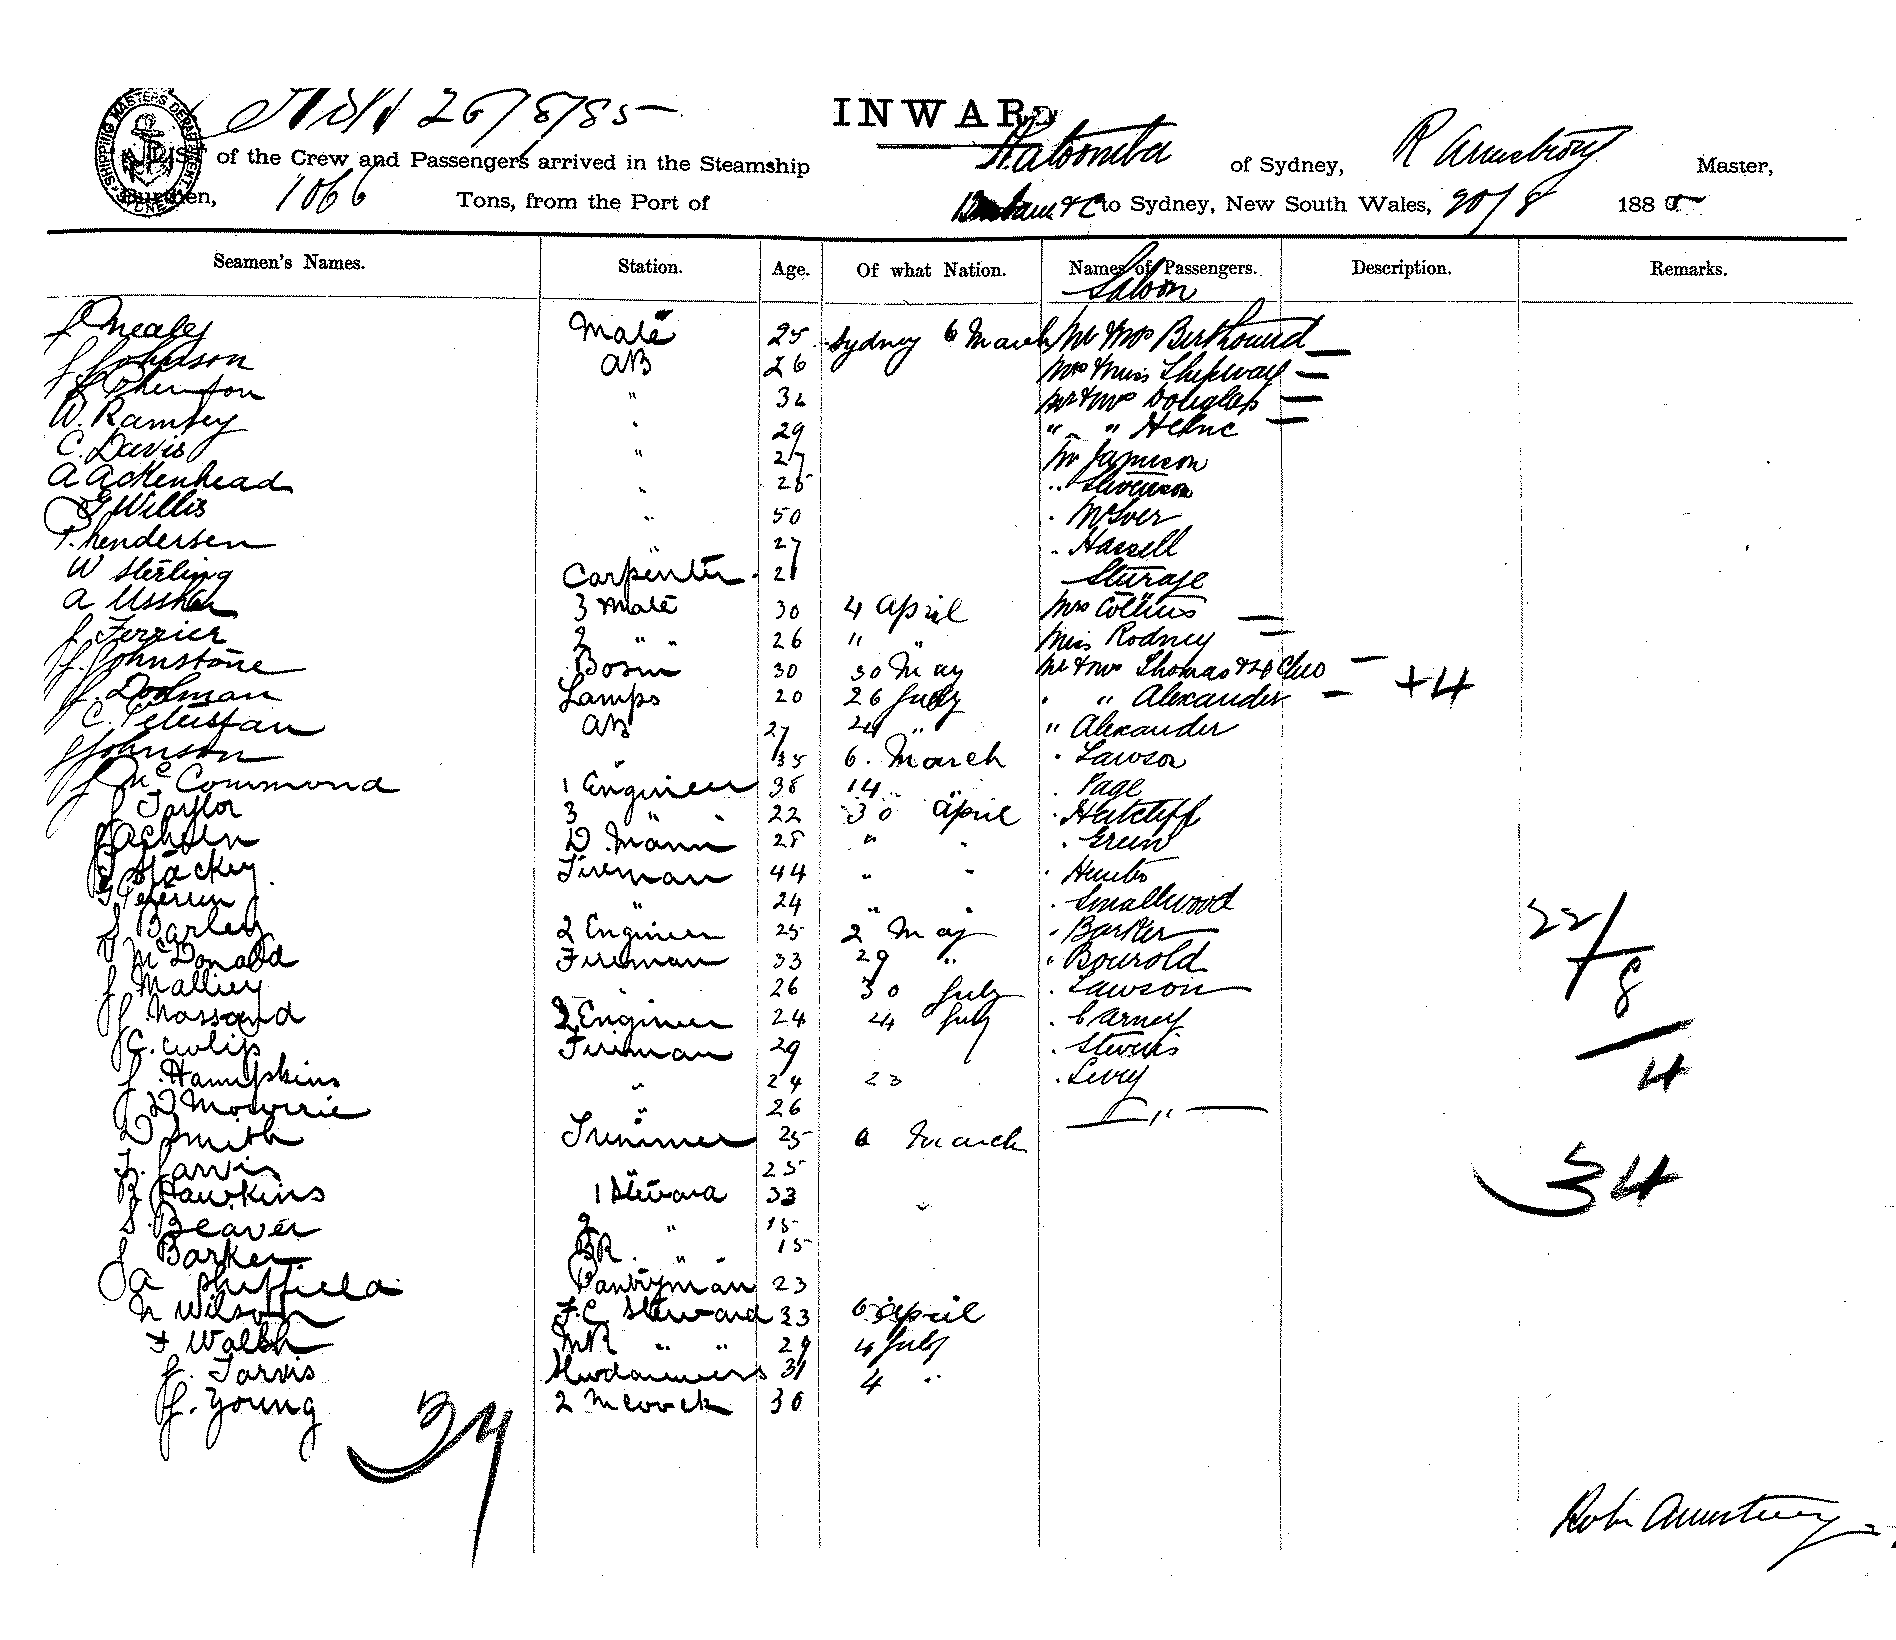 26/8/85
INWARD
LIST of the Crew and Passengers arrived in the Steamship Katoomba of Sydney, R Armstrong Master,
Burthen, 1066 Tons, from the Port of Brisbane &c to Sydney, New South Wales, 20/8 1885
Seamen's Names. Station. Age. Of what Nation. Names of Passengers. Description. Remarks.
Saloon
Mealey Mate 25 Sydney 6 March Mr & Mrs
J Johnson AB 26 Mrs & Miss Shipway —
" 32 Mr & Mrs Douglas —
W. Ramsey " 29 " " Heane —
C. Davis " 27 Mr Jamieson
A Ackenhead " 25 " Stevenson
G Willis " 50 " McIver
P. Hendersen " 27 " Hassell
W Sterling Carpenter 21 Steerage
A Ussher 3 Mate 30 4 April Mrs Collins —
J Ferrier 2 " " 26 " " Miss Rodney —
J. Johnstone Bosun 30 30 May Mr & Mrs Thomas & 2 Chs — +4
J. Dodman Lamps 20 26 July " " Alexander —
C. AB 27 24 " " Alexander
J Johnson " 35 6 March " Lawson
J McCommond 1 Engineer 38 14 " " Page
J Taylor 3 " " 22 30 April " Hutcliff
J Achsen D. Mann 28 " " " Green
J Mackey Fireman 44 " " " Hunter
Petersen " 24 " " " Smallwood
J Barley 2 Engineer 25 2 May " Barker
J McDonald Fireman 33 29 " " Bourold
J Malliey " 26 30 July " Lawson 22/8
J Massand 2 Engineer 24 4 July " Carney
Fireman 29 " Stevens — 4
J. Hampskins " 24 23 " Levy
D " 26
D Smith Trimmer 25 6 March
F. Jarvis " 25 34
R Hawkins 1 Steward 33 "
S. Beaver 2 " 15
J Barker BR. " " 15
J A Sheffield Pantryman 23
N Wilson F.C. Steward 33 6 April
F Walsh MR " " 29 4 July
J. Jarvis Stewardess 31 4 "
J. Young 2 M Cook 30
37
Robt Armstrong